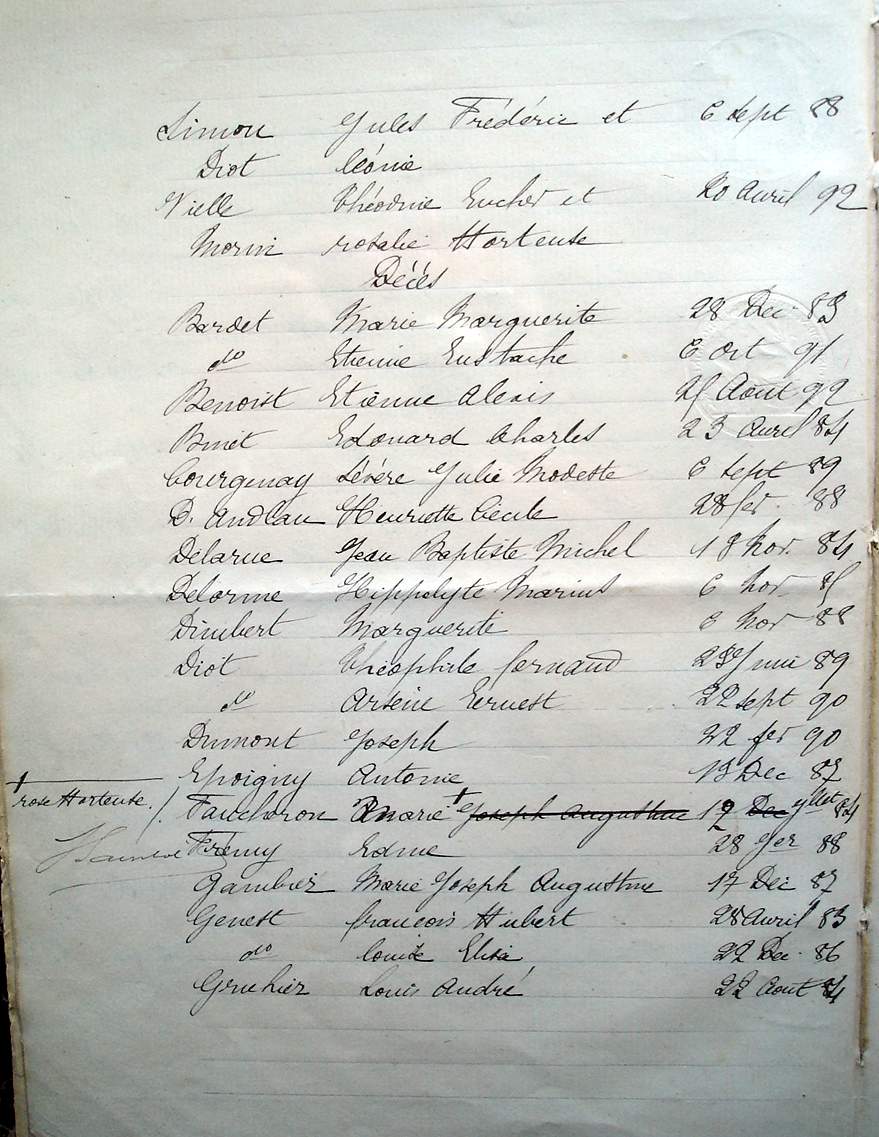 Simon Jules Frédéric et 6 sept 88
Diot Léonie
Vielle Théodnie Eucher et 20 avril 92
Morin rosalie Hortense
Décés
Bardet Marie Marguerite 28 Dec. 83
do Etienne Eustache 6 oct 91
Benoist Etienne Alexis 25 Août 92
Binet Edouard Charles 23 avril 84
Courgenay Sévére Julie Modeste 6 sept 89
D. Andlau Henriette Cécile 28 fer. 88
Delarue Jean Baptiste Michel 18 Nov. 84
Delorme Hippolyte Marius 6 nov 85
Dimbert Marguerite 8 Nov 88
Diot Théophile fernand mai 89
do Arsène Ernest 22 sept 90
Dumont Joseph 22 fer 90
Epoigny Antonie 13 Dec 87
rose Hortense. / Faucheron Marie + Joseph Augustine 19 Dec jllet 84
Frémy Edme 28 88
Gambier Marie Joseph Augustine 17 Dec 87
Genest francois Hubert 28 avril 83
do Louise Elisa 22 Dec. 86
Gruhier Louis André 22 Aout 84